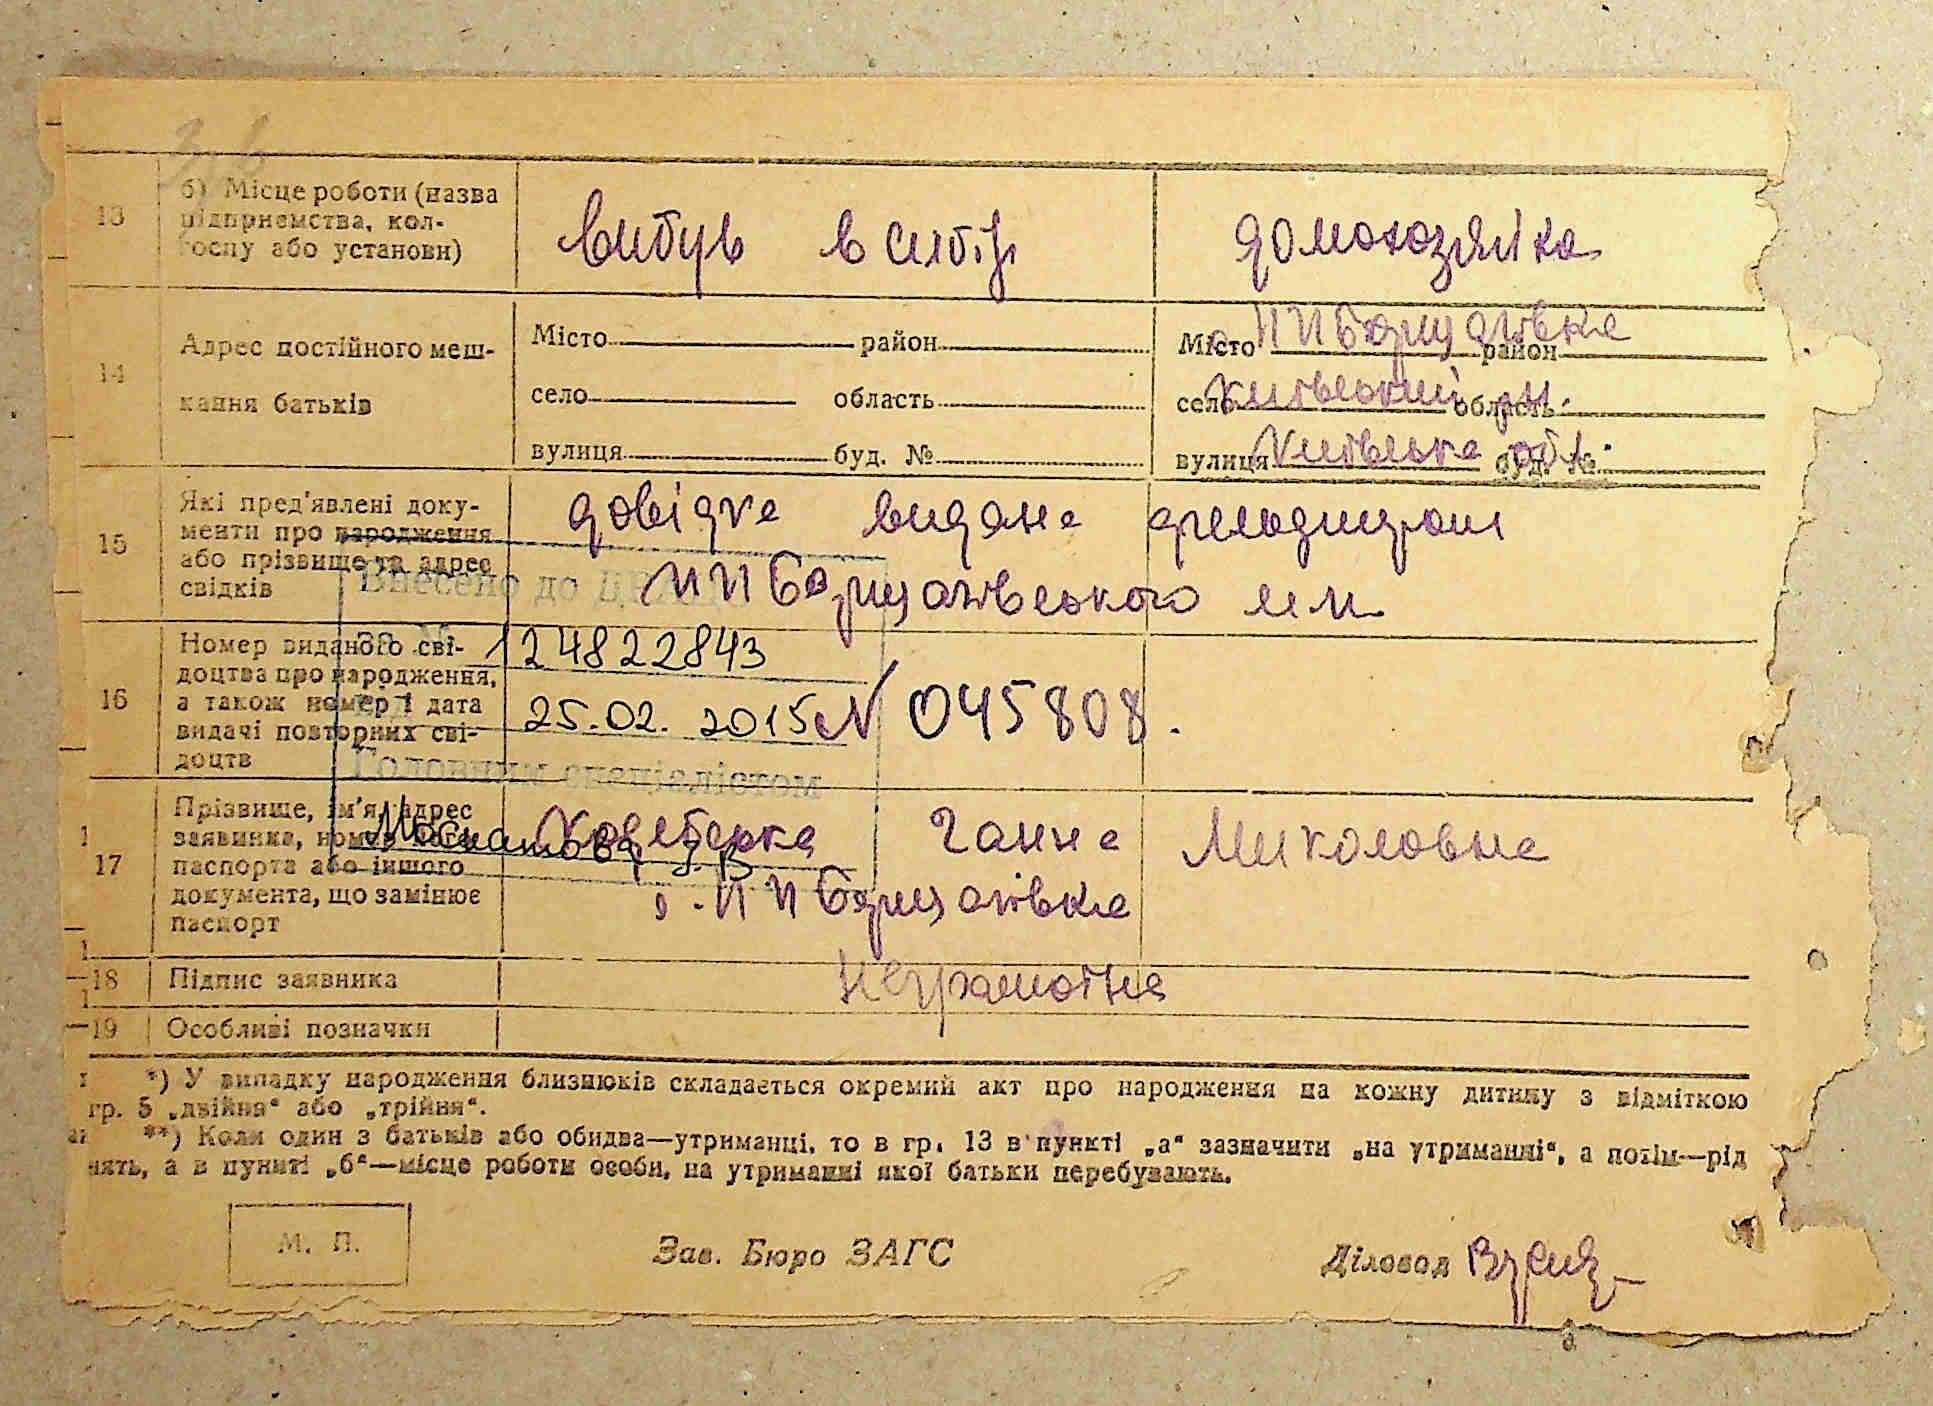 13 б) Місце роботи (назва
підприємства, кол-
госпу або установи)
вибув в сибір
домохозяйка
14 Адрес постійного меш-
кання батьків
Місто район
село область
вулиця буд. №
Місто район
с. ПП Борщагівка
село область
Київський рн.
вулиця буд. №
Київська обл.
15 Які пред'явлені доку-
менти про народження
або прізвище та адрес
свідків
довідка видана
ПП Борщагівського
Внесено до
16 Номер виданого сві-
доцтва про народження,
а також номер і дата
видачі повторних сві-
доцтв
за №
124822843
від
25.02.2015
N 045808.
Головним спеціалістом
17 Прізвище, ім'я, адрес
заявника, номер його
паспорта або іншого
документа, що замінює
паспорт
Ганна Миколовна
с. ПП Борщагівка
18 Підпис заявника
Неграмотна
19 Особливі позначки
*) У випадку народження близнюків складається окремий акт про народження на кожну дитину з відміткою
гр. 5 „двійня“ або „трійня“.
**) Коли один з батьків або обидва—утриманці, то в гр. 13 в пункті „а“ зазначити „на утриманні“, а потім—рід
нять, а в пункті „б“—місце роботи особи, на утриманні якої батьки перебувають.
М. П.
Зав. Бюро ЗАГС
Діловод